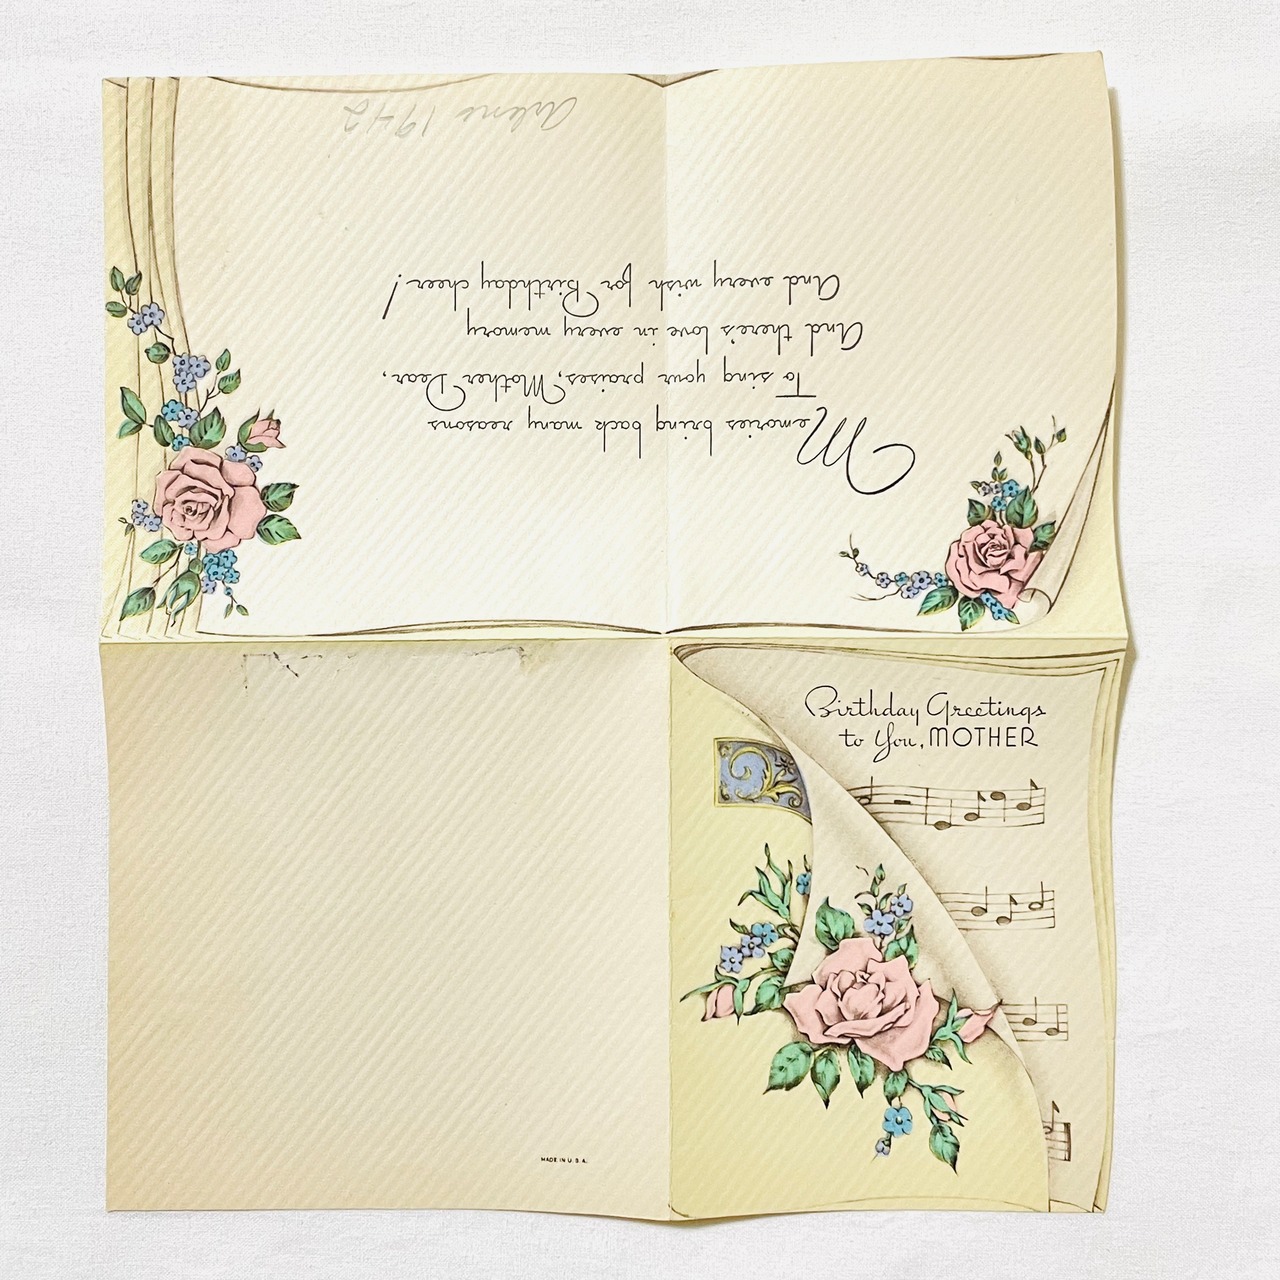 Birthday Greetings
to You, MOTHER
Memories bring back many reasons
To sing your praises, Mother Dear,
And there's love in every memory
And every wish for Birthday cheer!
Arlene 1942
MADE IN U.S.A.